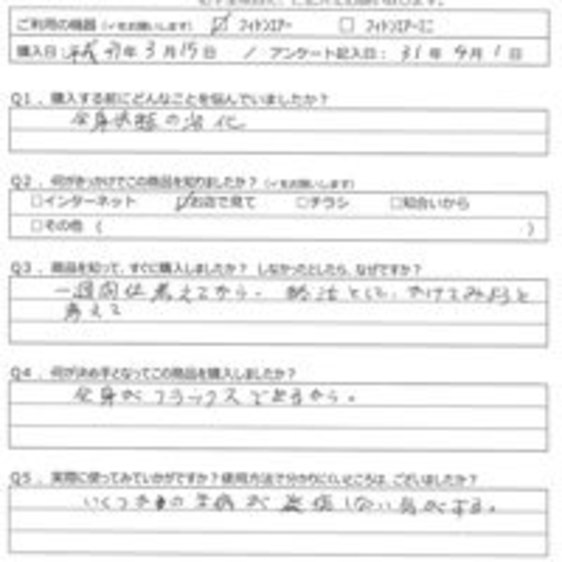 ご利用の機器（✓をお願いします） ☑ フィトンエアー □ フィトンエアーミニ
購入日：平成31年3月15日 / アンケート記入日：31年4月1日
Q1．購入する前にどんなことを悩んでいましたか？
全身状態の劣化
Q2．何がきっかけでこの商品を知りましたか？（✓をお願いします）
□インターネット ☑お店で見て □チラシ □知合いから
□その他（ ）
Q3．商品を知って、すぐに購入しましたか？ しなかったとしたら、なぜですか？
一週間位考えてから。
考えて
Q4．何が決め手となってこの商品を購入しましたか？
全身がリラックスできるから。
Q5．実際に使ってみていかがですか？使用方法で分かりにくいところは、ございましたか？
いくつかの しない気がする。